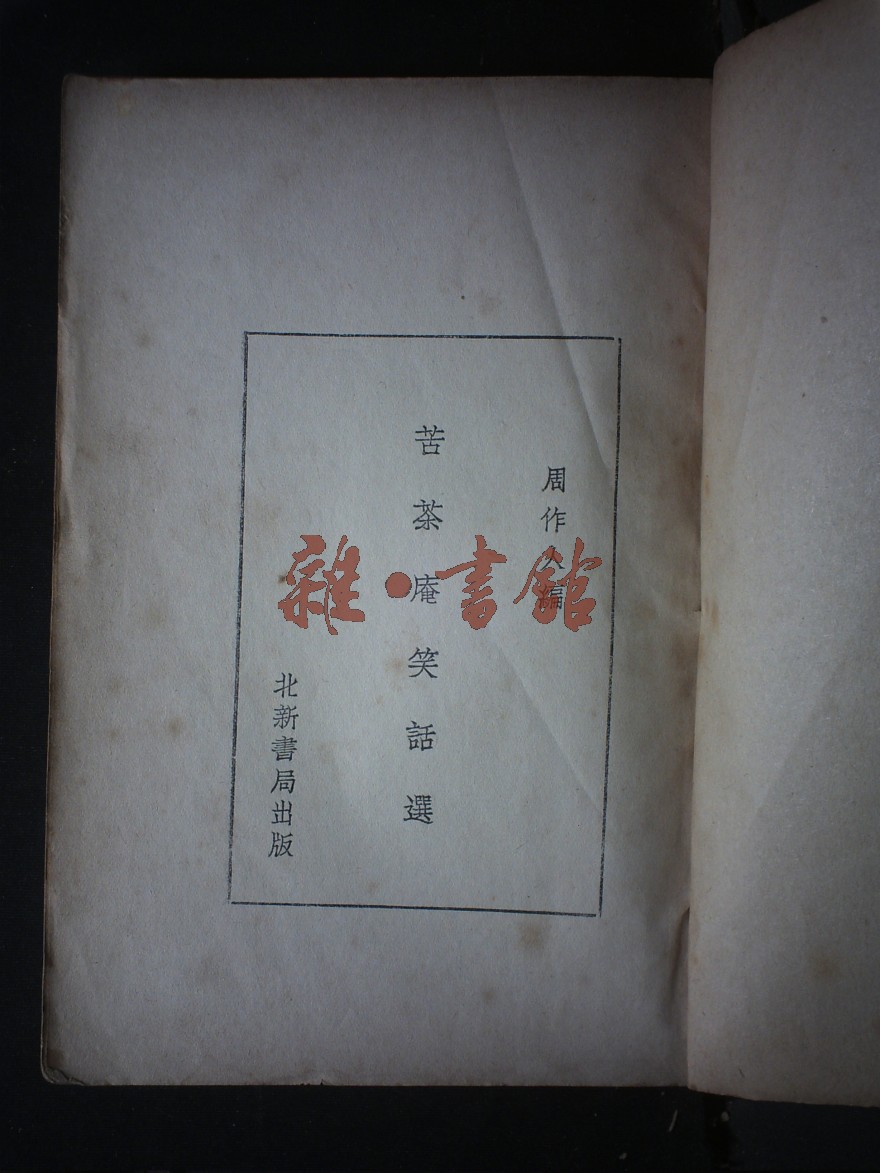 周作人編
苦茶庵笑話選
北新書局出版
雜·書館